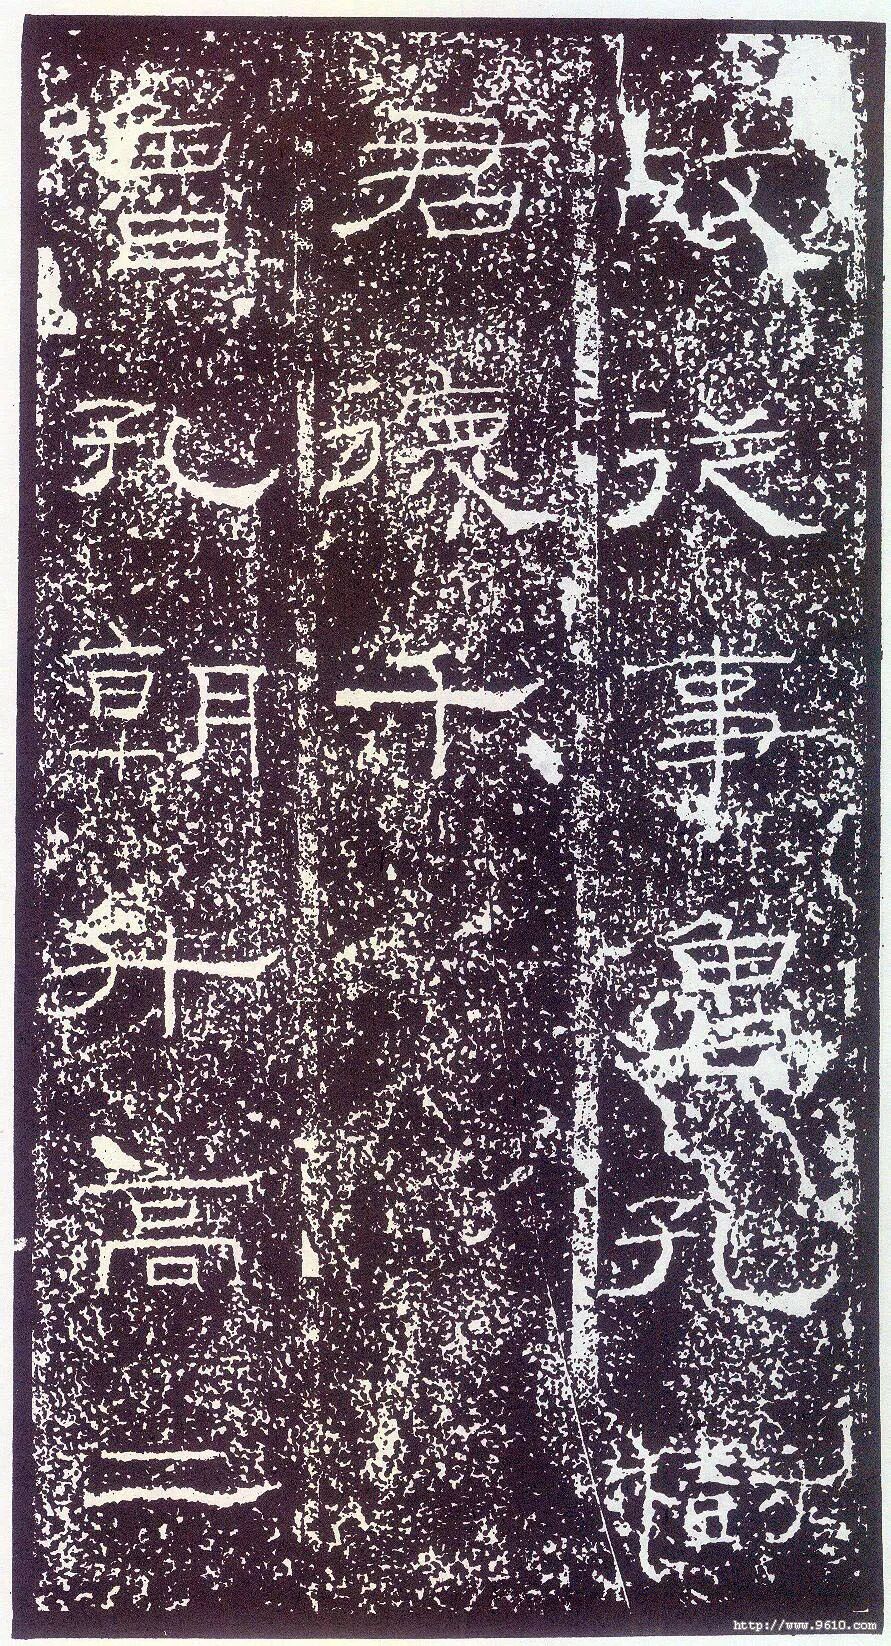 故從事魯孔樹
君德千
魯孔朝升高二
http://www.9610.com